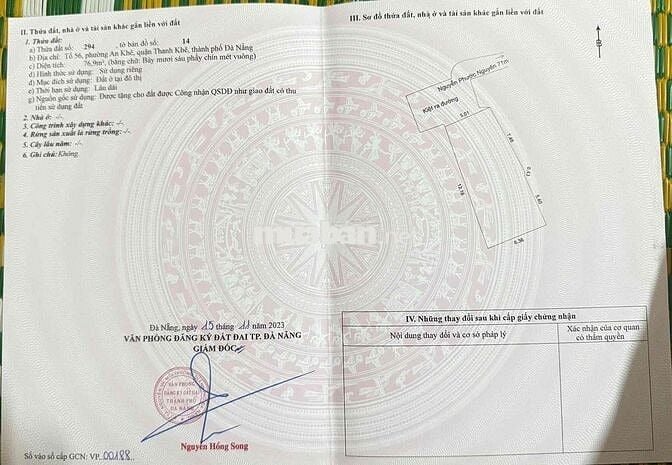 II. Thửa đất, nhà ở và tài sản khác gắn liền với đất
1. Thửa đất:
a) Thửa đất số: 294 , tờ bản đồ số: 14
b) Địa chỉ: Tổ 56, phường An Khê, quận Thanh Khê, thành phố Đà Nẵng
c) Diện tích: 76,9m², (bằng chữ: Bảy mươi sáu phẩy chín mét vuông)
d) Hình thức sử dụng: Sử dụng riêng
đ) Mục đích sử dụng: Đất ở tại đô thị
e) Thời hạn sử dụng: Lâu dài
g) Nguồn gốc sử dụng: Được tặng cho đất được Công nhận QSDĐ như giao đất có thu
tiền sử dụng đất
2. Nhà ở: -/-.
3. Công trình xây dựng khác: -/-.
4. Rừng sản xuất là rừng trồng: -/-.
5. Cây lâu năm: -/-.
6. Ghi chú: Không.
Đà Nẵng, ngày 15 tháng 11 năm 2023
VĂN PHÒNG ĐĂNG KÝ ĐẤT ĐAI TP. ĐÀ NẴNG
GIÁM ĐỐC
VĂN PHÒNG
ĐĂNG KÝ ĐẤT ĐAI
THÀNH PHỐ
ĐÀ NẴNG
Nguyễn Hồng Song
Số vào sổ cấp GCN: VP 00188
III. Sơ đồ thửa đất, nhà ở và tài sản khác gắn liền với đất
B
Nguyễn Phước Nguyên 77m
Kiệt ra đường
5.01
7.46
12.16
5.40
6.36
muaban.net
IV. Những thay đổi sau khi cấp giấy chứng nhận
Nội dung thay đổi và cơ sở pháp lý
Xác nhận của cơ quan
có thẩm quyền